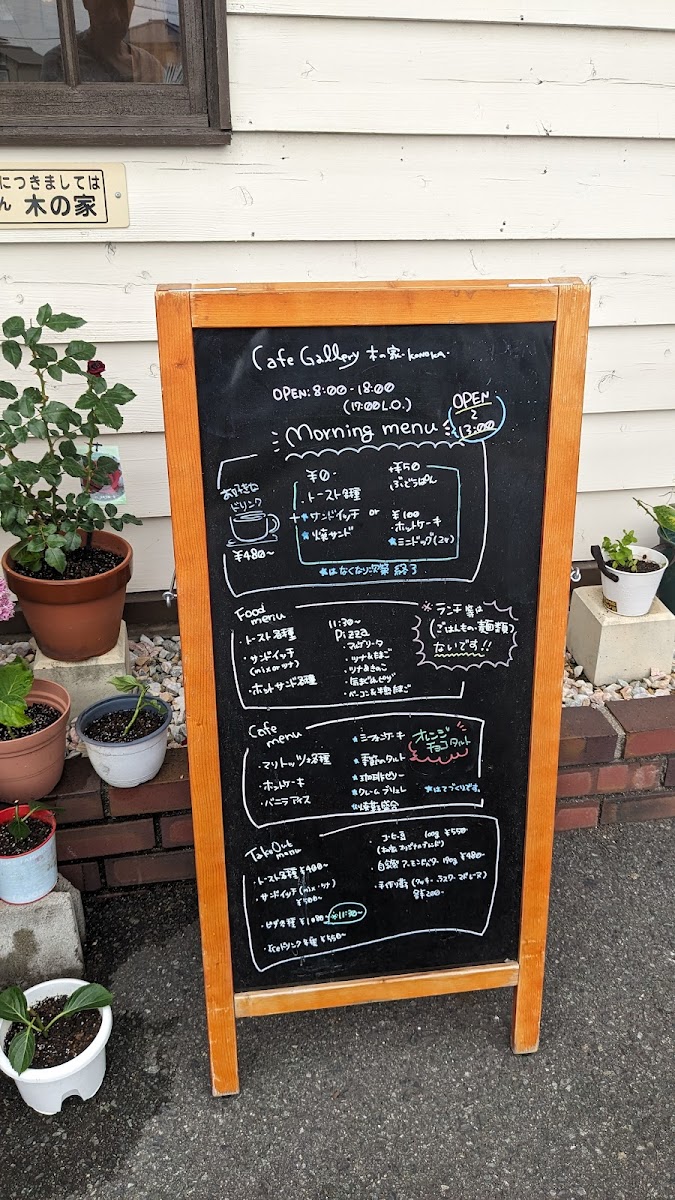 につきましては
ん 木の家
Cafe Gallery 木の家 KONOKA.
OPEN: 8:00-18:00
(17:00 L.O.)
Morning menu
OPEN
~
13:00
お好きな
ドリンク
¥480~
+
¥0-
・トースト各種
★サンドイッチ
★焼サンド
or
+¥50
ぶどうぱん
¥100
・ホットケーキ
★ミニドッグ(2ヶ)
★はなくなり次第 終了
Food
menu
・トースト各種
・サンドイッチ
(mix or ツナ)
・ホットサンド各種
11:30~
Pizza
・マルゲリータ
・ツナ&たまご
・ツナ&きのこ
・気まぐれピザ
・ベーコン&半熟たまご
*ランチ等は
(ごはんもの・麺類)
ないです!!
Cafe
menu
・マリトッツォ各種
・ホットケーキ
・バニラアイス
★シフォンケーキ
★季節のタルト
★珈琲ゼリー
★クレームブリュレ
オレンジ
チョコタルト
★はてづくりです。
TakeOut
menu
・トースト各種 ¥400~
・サンドイッチ (mix・ツナ)
¥500~
・ピザ各種 ¥1080~ *11:30~
・Iceドリンク各種 ¥550~
・コーヒー豆 100g ¥550
・自家製 アーモンドバター 190g ¥480-